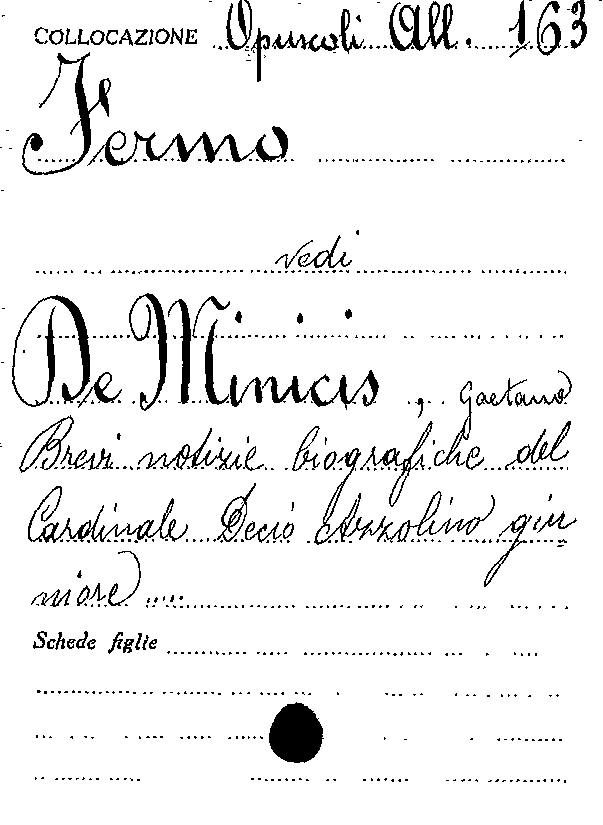 COLLOCAZIONE Opuscoli All. 163
Fermo
vedi
De Minicis, Gaetano
Brevi notizie biografiche del
Cardinale Decio Azzolino giu=
niore .....
Schede figlie